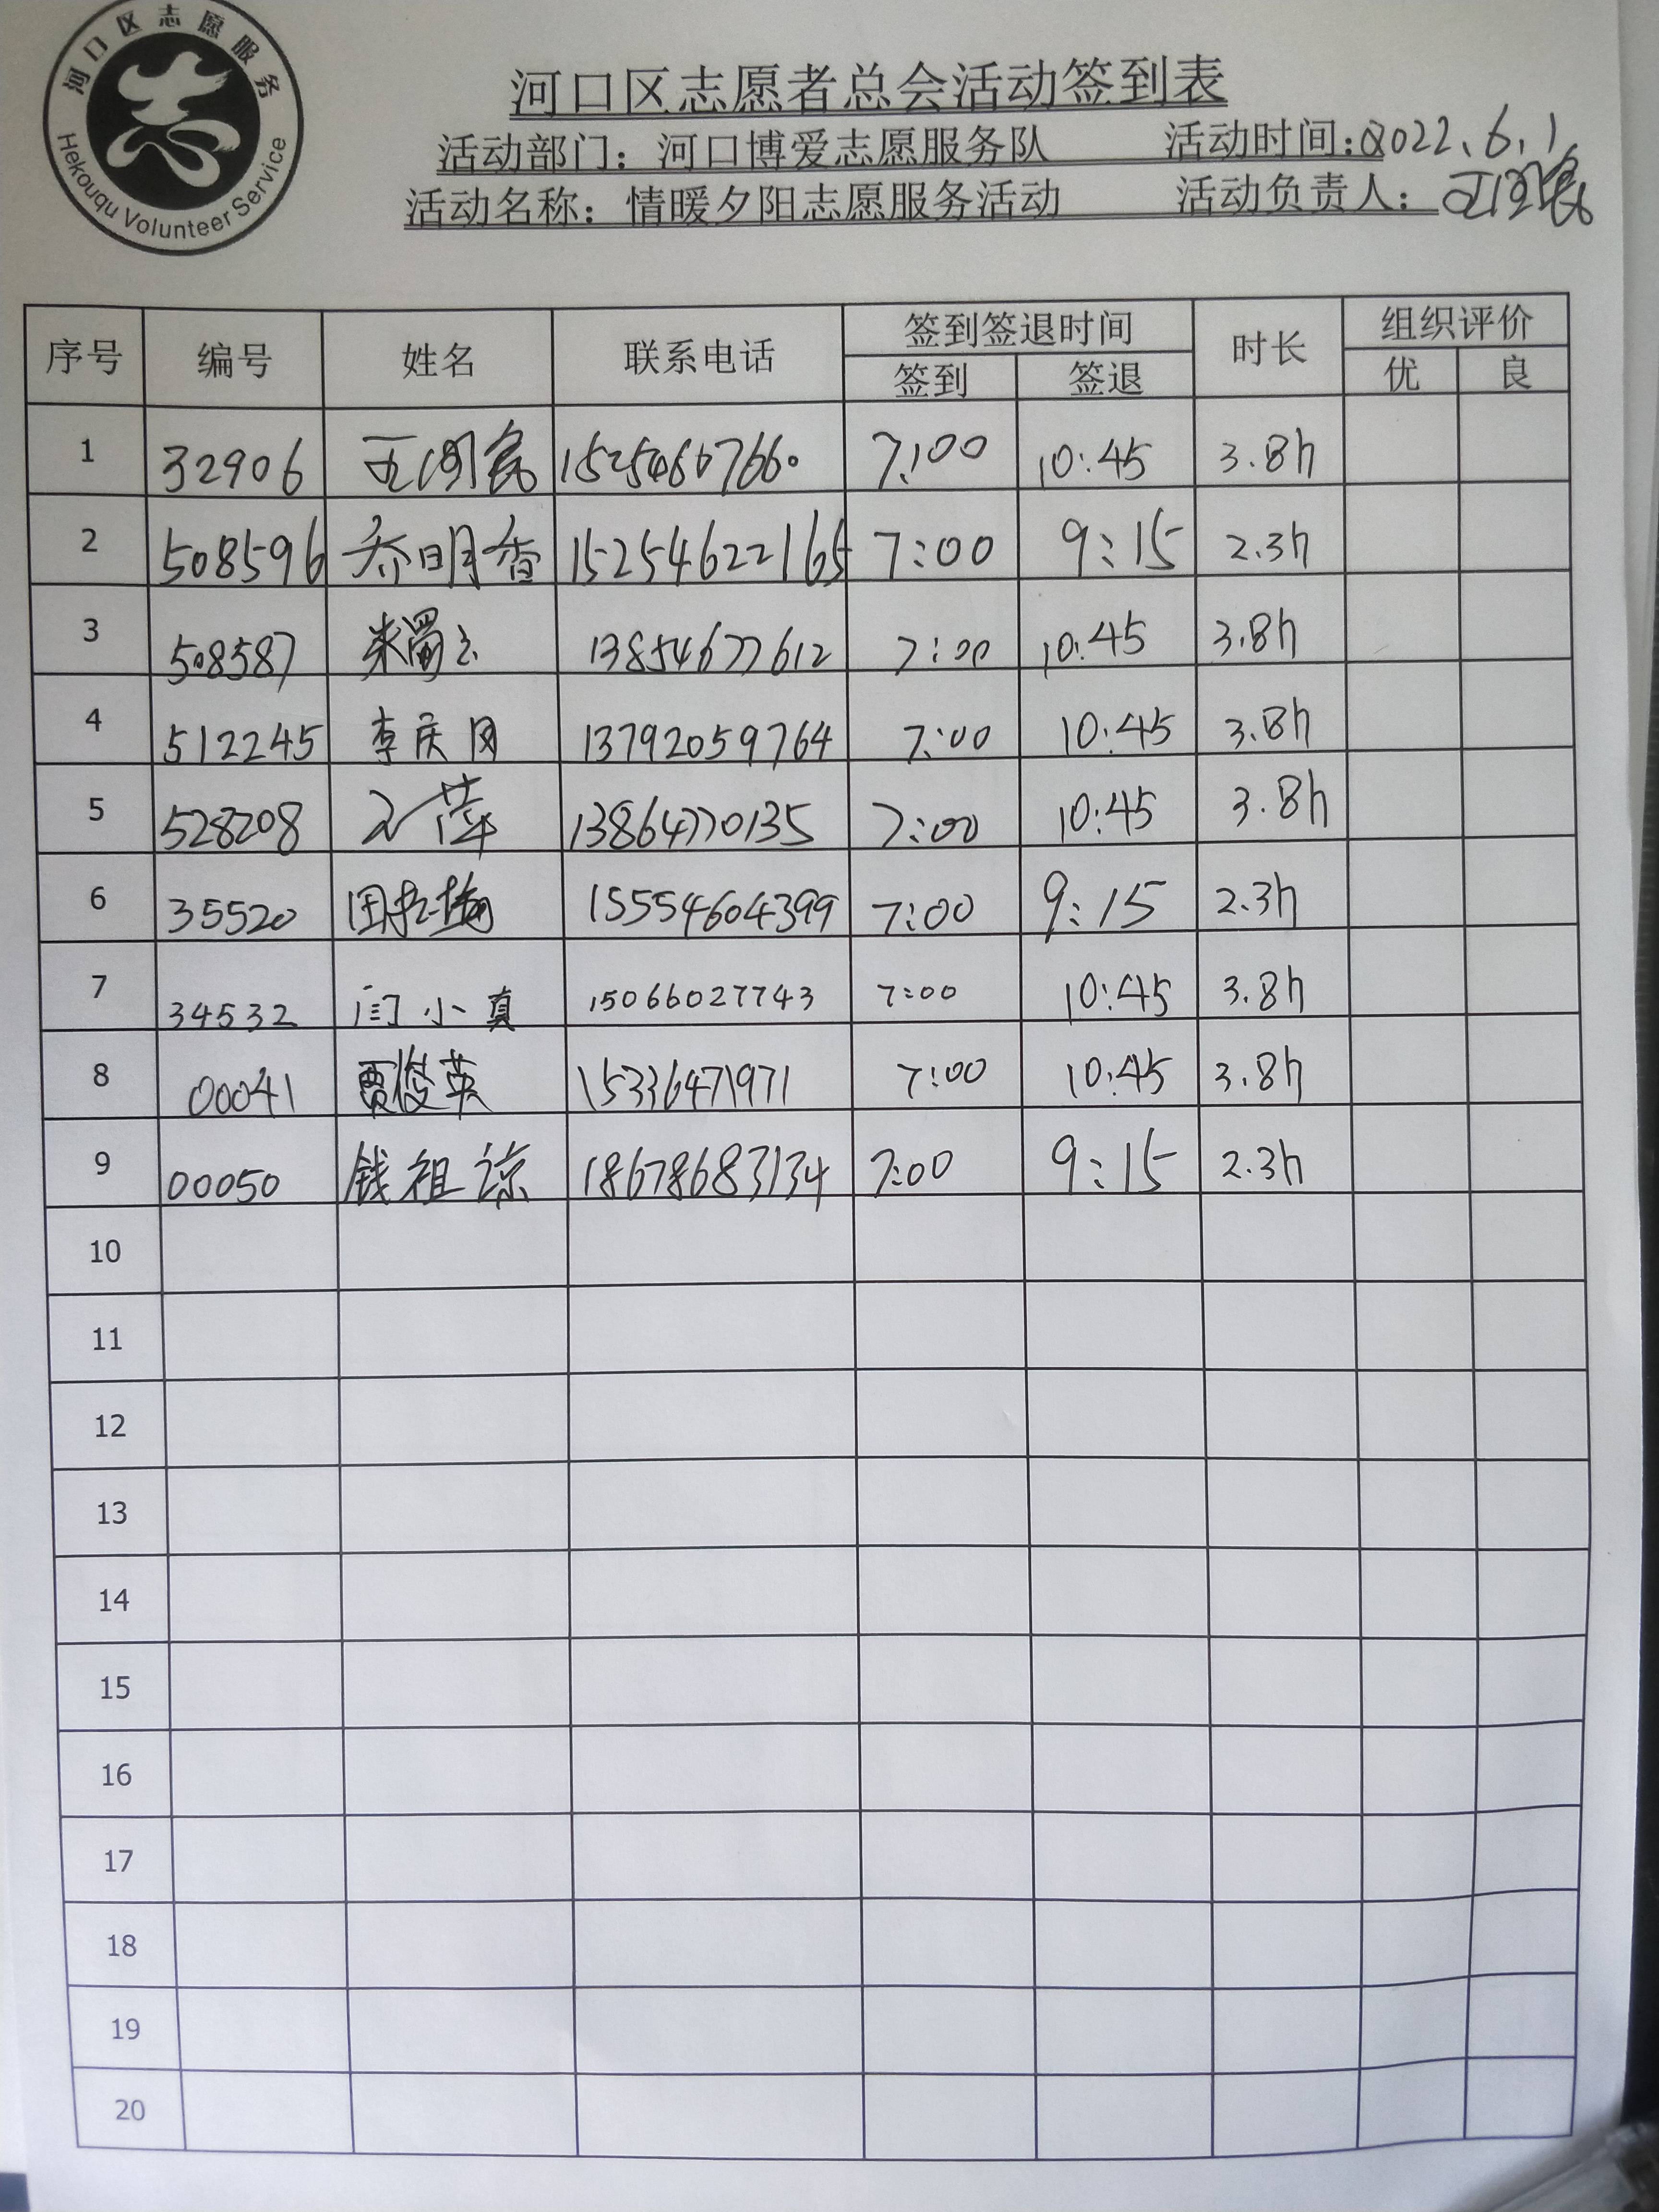 河口区志愿服务
Hekouqu Volunteer Service
河口区志愿者总会活动签到表
活动部门：河口博爱志愿服务队 活动时间：2022.6.1
活动名称：情暖夕阳志愿服务活动 活动负责人：
序号 编号 姓名 联系电话 签到签退时间 时长 组织评价
签到 签退 优 良
1 32906 15254667660 7:00 10:45 3.8h
2 508596 乔明香 15254622165 7:00 9:15 2.3h
3 508587 13854677612 7:00 10:45 3.8h
4 512245 李庆 13792059764 7:00 10:45 3.8h
5 528208 萍 13864770135 7:00 10:45 3.8h
6 35520 田 15554604399 7:00 9:15 2.3h
7 34532 闫小真 15066027743 7:00 10:45 3.8h
8 00041 贾俊英 15336471971 7:00 10:45 3.8h
9 00050 钱祖谅 18678683134 7:00 9:15 2.3h
10
11
12
13
14
15
16
17
18
19
20